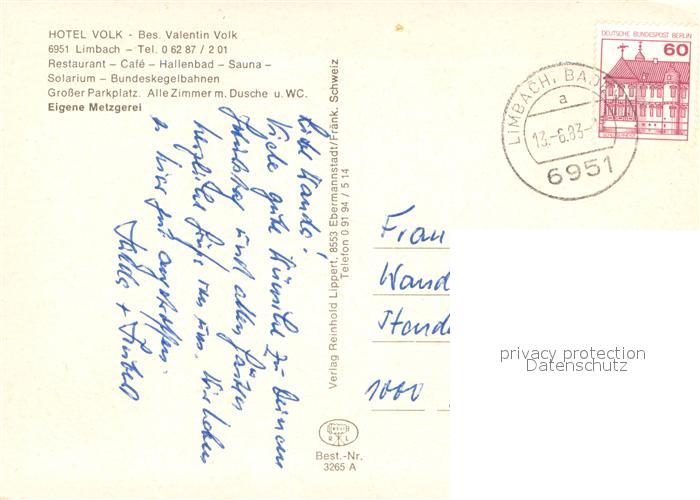 HOTEL VOLK - Bes. Valentin Volk
6951 Limbach – Tel. 0 62 87 / 2 01
Restaurant – Café – Hallenbad – Sauna –
Solarium – Bundeskegelbahnen
Großer Parkplatz. Alle Zimmer m. Dusche u. WC.
Eigene Metzgerei
DEUTSCHE BUNDESPOST BERLIN
60
LIMBACH, BAD
a
13.-6.83-
6951
Liebe Wanda!
Viele gute Wünsche zu Deinem
und allen Gästen
herzliche Grüße von uns. Wir haben
hier gut
Verlag Reinhold Lippert, 8553 Ebermannstadt/Fränk. Schweiz
Telefon 0 91 94 / 5 14
Frau
Wand
1000
privacy protection
Datenschutz
R L
Best.-Nr.
3265 A